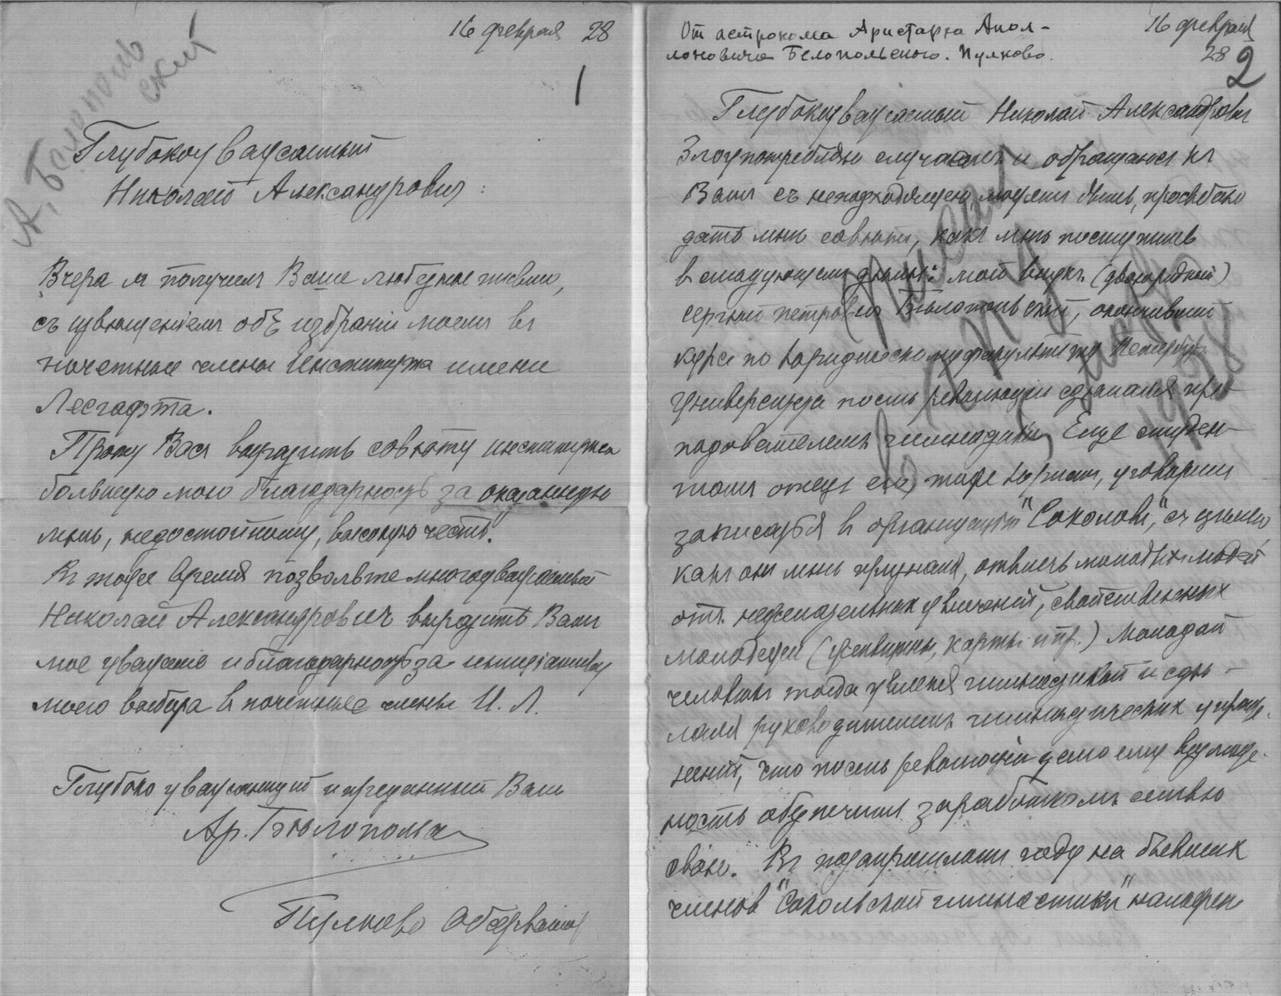 16 февраля 28
1
А. Белопольский
Глубокоуважаемый
Николай Александрович:
Вчера я получил Ваше любезное письмо,
съ извещеніемъ объ избраніи моемъ въ
почетные члены Института имени
Лесгафта.
Прошу Васъ выразить совѣту института
большую мою благодарность за оказанную
мнѣ, недостойному, высокую честь.
Въ тоже время позвольте многоуважаемый
Николай Александровичъ выразить Вамъ
мое уваженіе и благодарность за иниціативу
моего выбора в почетные члены И. Л.
Глубоко уважающій и преданный Вамъ
Ар. Бѣлопольскій
Пулково Обсерваторія
От астронома Аристарха Апол-
лоновича Белопольского. Пулково.
16 февраля
28
2
Глубокоуважаемый Николай Александрович
Злоупотребляю случаемъ и обращаюсь къ
Вамъ съ неподходящею, просьбою
дать мнѣ совѣтъ, какъ мнѣ поступить
в слѣдующемъ дѣлѣ: мой внукъ (двоюродный)
Сергѣй Петровичъ, окончившій
курсъ по юридическому факультету
Университета послѣ революціи сдѣлался пре-
подователемъ гимнастики. Еще студен-
томъ отецъ его, тоже юристъ, уговорилъ
записаться в организацію "Соколовъ", съ цѣлью
какъ онъ мнѣ, отвлечь молодыхъ людей
отъ нежелательныхъ увлеченій, свойственныхъ
молодежи (женщины, карты и пр.) Молодой
человѣкъ тогда увлекся гимнастикой и сдѣ-
лался руководителемъ гимнастическихъ упраж-
неній, что послѣ революціи дало ему возмож-
ность обезпечить заработкомъ семью
свою. Въ позапрошломъ году на бывшихъ
членовъ "Сокольской гимнастики" наложено